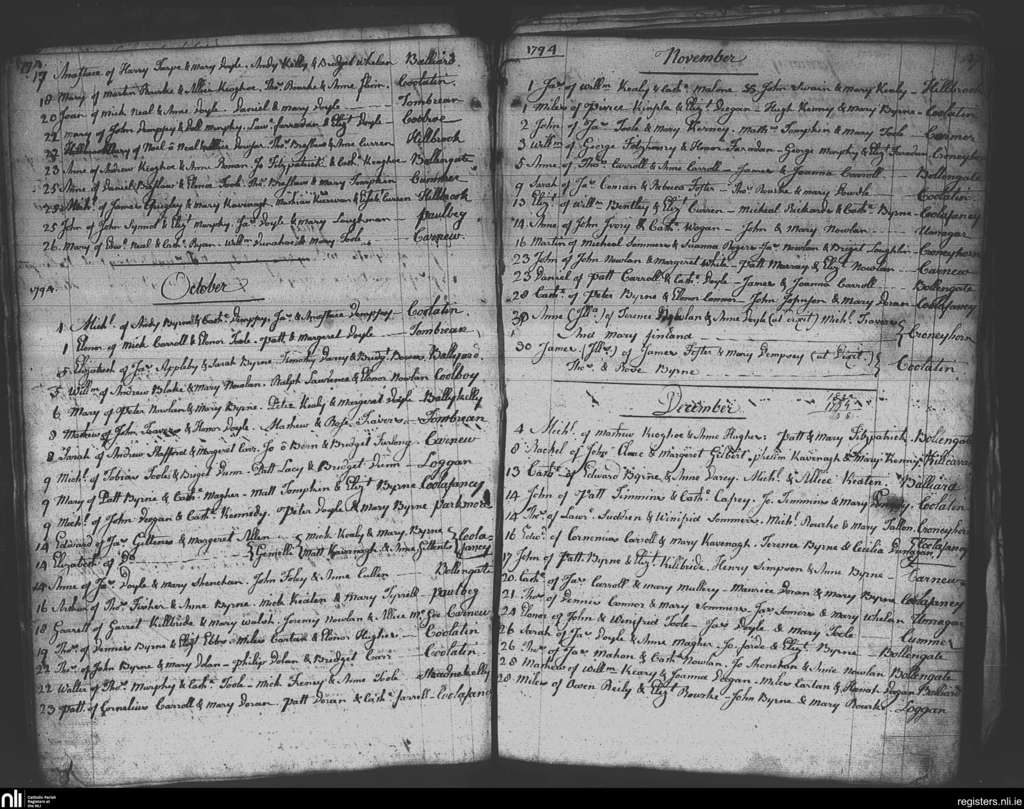 17 Anastace of Harry Toope & Mary Doyle. Andy Kelly & Bridget Whelan Balliard
18 Mary of Martin Rourke & Allice Kioghoe. Thos. Rourke & Anne Coolatin.
20 Joan of Mick Neal & Anne Doyle - Daniel & Mary Doyle Tombrean
22 Mary of John Dempsy & Doll Murphy. Law. Farradan & Elizt. Doyle
Mary of Neal o Neal & Allice Dwyer Thos. Breslawn & Ann Curren Hillbrook
23 Anne of Andrew Kioghoe & Anne Ronan. Jo. Fitzpatrick & Cath. Kioghoe Bollengate
25 Anne of Daniel Breslawn & Elenor Toole. Thos. Breslawn & Mary Tompkin Cummer
25 Michl. of James Quigley & Mary Kavinagh. Curren Hillbrook
25 John of John Synnot & Elizt. Murphy. Jas. Doyle & Mary Loughman - Paulbeg
26 Mary of Edwd. Neal & Cath. Ryan. Willm. & Mary Toole - Carnew.
1794 October
1 Michl. of Andy Byrne & Cath. Dempsy, Jas. & Anastace Dempsey Coolatin.
1 Elenor of Mick Carroll & Elenor Toole. Patt & Margeret Doyle Tombrean
5 Elizabeth of Jas. Appleby & Sarah Byrne Timothy Darcy & Bridgt. Ballyard.
5 Willm. of Andrew Blake & Mary Nowlan. Ralph Lawrence & Elenor Nowlan Coolboy
6 Mary of Peter Nowlan & Mary Byrne. Peter Kealy & Margeret Doyle Ballykelly
8 Mathew of John Travers & Honor Doyle. Mathew & Rose Travers Tombrean
8 Sarah of Andrew Stafford & Margeret Carr. Jo. & Bridget Carnew
9 Michl. of Tobias Toole & Briget Dunn. Patt Lacy & Bridget Dunn - Loggan
9 Mary of Patt Byrne & Cath. Magher - Matt Tompkin & Elizt. Byrne Coolafancy
9 Michl. of John Deegan & Cath. Kennedy. Peter Doyle & Mary Byrne Parkmore
14 Edward of Jas. Cullenes & Margeret Allen - Mick Kealy & Mary Byrne Coola-
14 Elizabeth of Do. - Gemilli Matt Kavinagh & Anne Gilbert fancy
14 Anne of Jas. Doyle & Mary Shenehan. John Foley & Anne Cullen Bollengate
16 Arthur of Thos. Fisher & Anne Byrne. Mick Keaten & Mary Tyrell - Paulbeg
18 Garrett of Garret Killbride & Mary Walsh. Jeremy Nowlan & Allice McGee Carnew
19 Thos. of Dennis Byrne & Elizt. Ebbs - Miles Cartan & Elenor Hughes - Coolatin
22 Thos. of John Byrne & Mary Dolan - Philip Dolan & Bridget Carr Coolatin.
22 Walter of Thos. Murphy & Cath. Toole - Mick Feeney & Anne Toole
23 Patt of Cornelius Carroll & Mary Doran. Patt Doran & Cath. Farrell - Coolafancy
1794 November
1 Jas. of Willm. Kealy & Cath. Malone John Swain & Mary Kealy - Hillbrook
1 Miles of Pierce Kinsela & Elizt. Deegan - Hugh Kenney & Mary Byrne - Coolatin
2 John of Jas. Toole & Mary Kerney. Mathw. Tompkin & Mary Toole - Cummer
3 Willm. of George Fitzhenry & Honor Faradan - George Murphy & Elizt. Faradan Croneyhorn
5 Anne of Thos. Carroll & Anne Carroll - James & Joanna Carroll Bollengate
9 Sarah of Jas. & Rebecca Foster - Thos. Rourke & Mary Coolatin
13 Elizt. of Willm. Bentley & Elizt. Curren - Micheal Rickards & Cath. Byrne - Coolafancy
14 Anne of John Ivory & Cath. Wogan - John & Mary Nowlan. Umnagar
16 Martin of Micheal Sommers & Susanna Rogers - Jas. Nowlan & Briget Laughlin - Croneyhorn
23 John of John Nowlan & Margeret White - Patt Murray & Elizt. Nowlan - Carnew
23 Daniel of Patt Carroll & Cath. Doyle - James & Joanna Carroll Bollengate
28 Cath. of Peter Byrne & Elenor Connor - John Johnson & Mary Doran - Coolafancy
30 Anne (Illa.) of Terence & Anne Doyle (ut dixit) Michl. Travers
And Mary Finland Croneyhorn
30 James (Illm.) of James Foster & Mary Dempsey (ut Dixit.)
Thos. & Rose Byrne Coolatin.
December
4 Michl. of Mathew Kioghoe & Anne Hughes. Patt & Mary Fitzpatrick, Bollengate
8 Rachel of John & Margeret Gilbert. Phelim Kavenagh & Mary Kenny
13 Cath. of Edward Byrne & Anne Darcy. Michl. & Allice Keaten. Balliard
14 John of Patt Timmins & Cath. Cafrey. Jo. Timmins & Mary Coolatin
14 Thos. of Lawr. & Winifred Sommers. Michl. Rourke & Mary Fallon Croneyhorn
16 Edwd. of Cornenius Carroll & Mary Kavenagh. Terence Byrne & Cecilia Coolafancy
17 John of Patt Byrne & Elizt. Killbride. Henry Simpson & Anne Byrne - Carnew
20 Cath. of Jas. Carroll & Mary - Maurice Doran & Mary Byrne Coolafancy
21 Thos. of Dennis Connor & Mary Sommers. Jas. Somers & Mary Whelan Umnagar
24 Elenor of John & Winifred Toole - Jas. Doyle & Mary Toole Cummer
26 Sarah of Jas. Doyle & Anne Magher. Jo. & Elizt. Byrne - Bollengate
26 Thos. of Jas. Mahon & Cath. Nowlan. Jo. Shenehan & Anne Nowlan Bollengate
28 Mathew of Willm. Keary & Joanna Deegan - Miles Cartan & Hanah Degan Balliard
28 Miles of Owen Reily & Elizt. Rourke - John Byrne & Mary Rourke - Loggan
nli Catholic Parish
Registers at
the NLI
registers.nli.ie